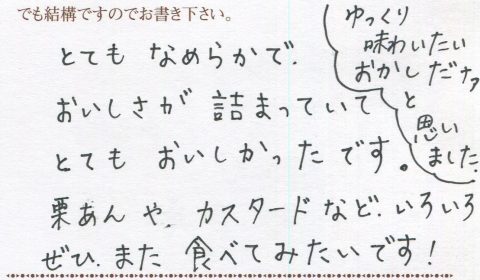 でも結構ですのでお書き下さい。
とても なめらかで、
おいしさが 詰まっていて
とても おいしかったです。
栗あんや、カスタードなど、いろいろ
ぜひ、また 食べてみたいです!
ゆっくり
味わいたい
おかしだナァ
と
思い
ました。